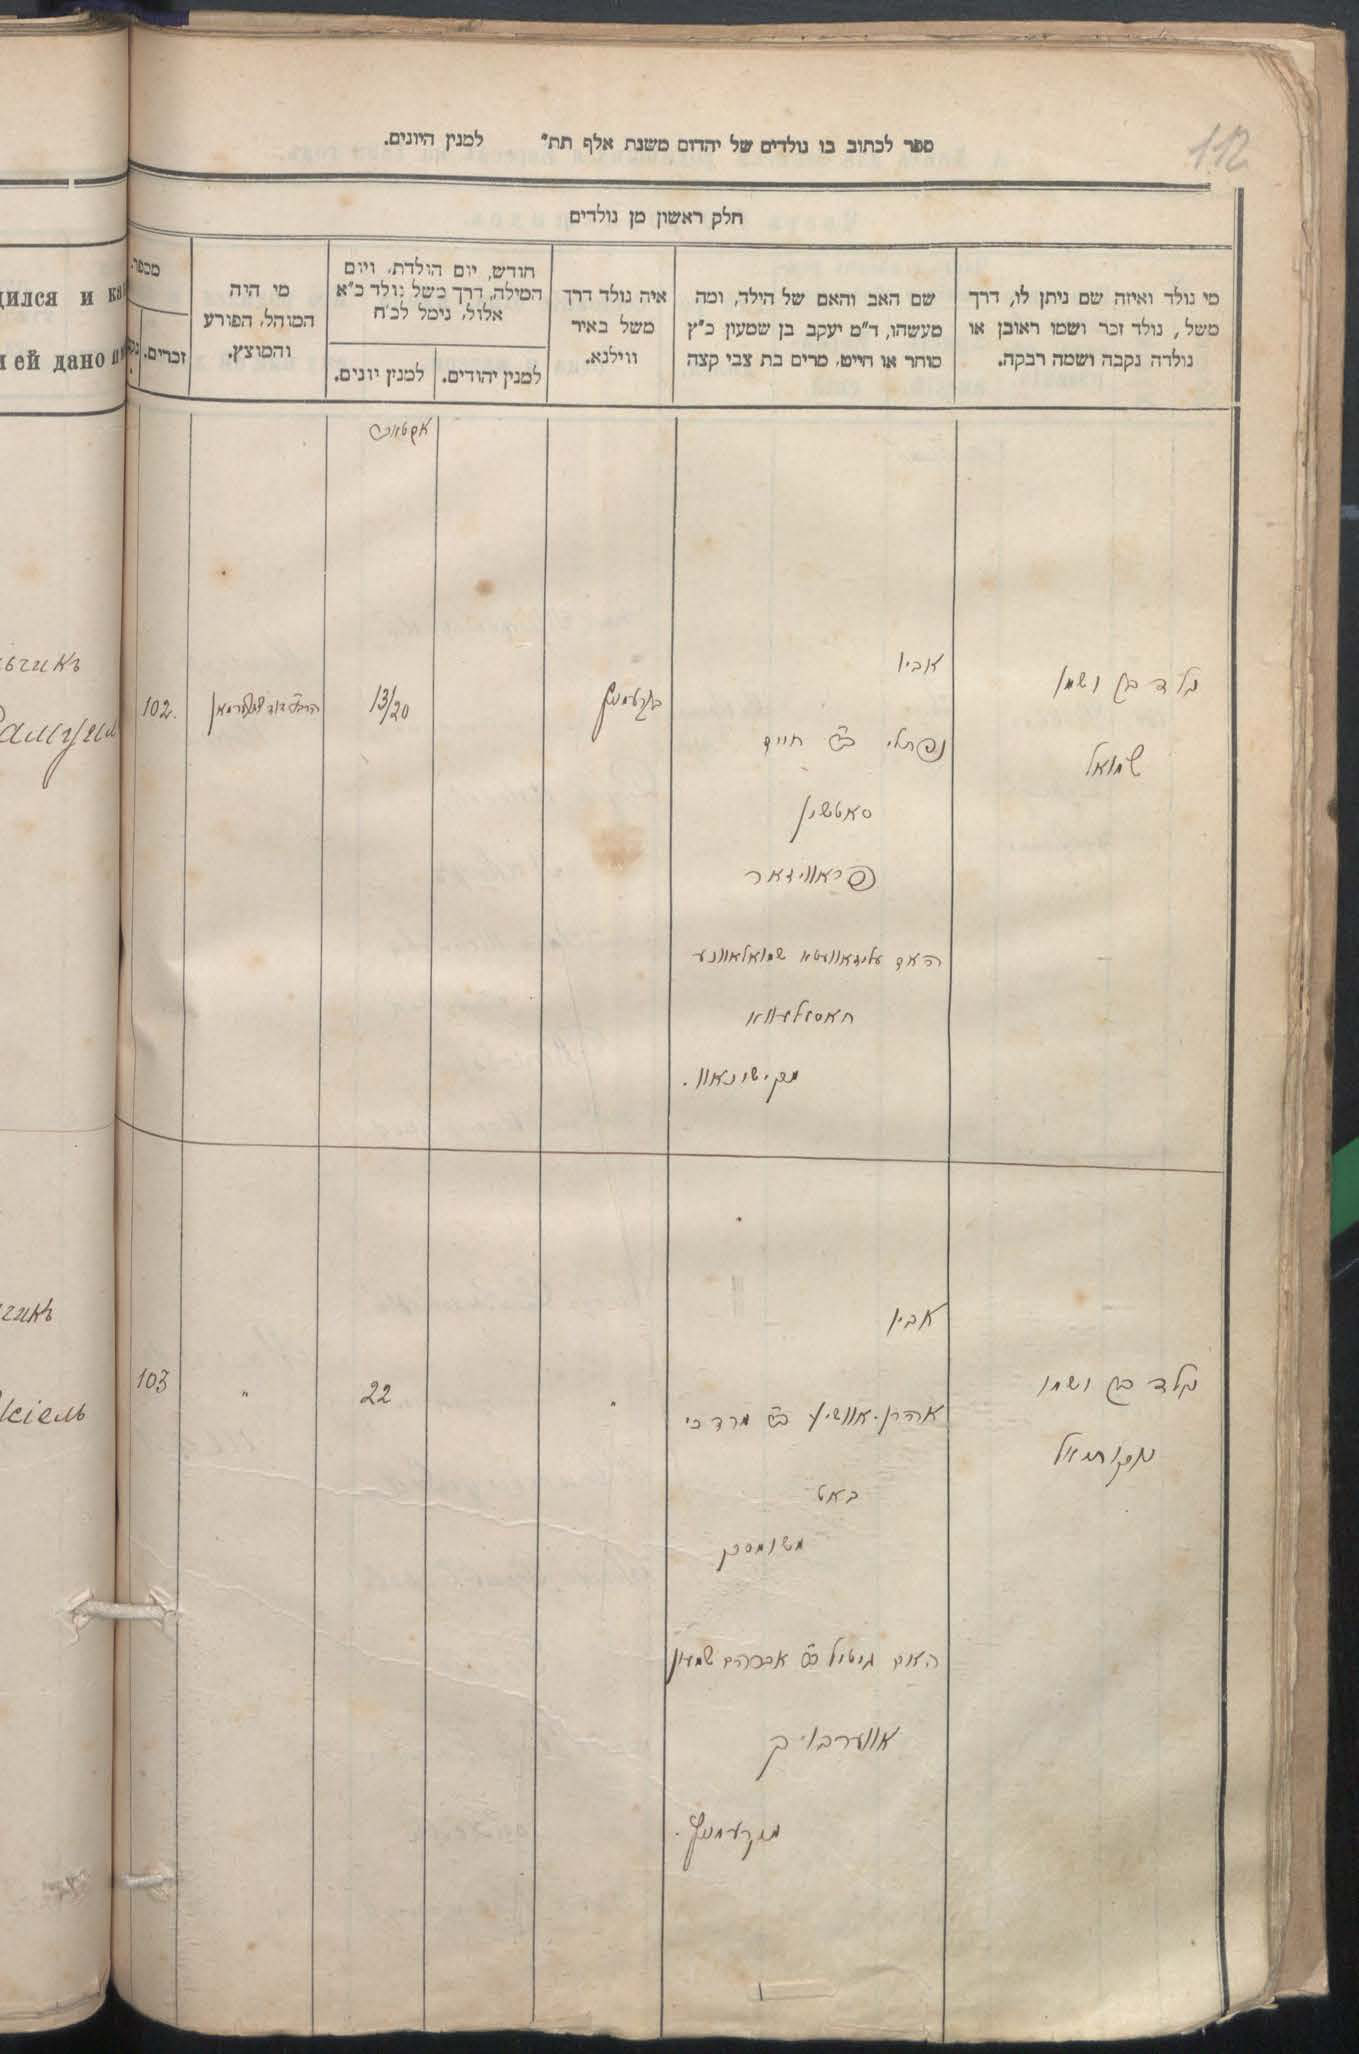 112
ספר לכתוב בו נולדים של יהדום משנת אלף תת" למנין היונים.
חלק ראשון מן נולדים
מי נולד ואיזה שם ניתן לו, דרך
משל, נולד זכר ושמו ראובן או
נולדה נקבה ושמה רבקה.
שם האב והאם של הילד, ומה
מעשהו, ד"מ יעקב בן שמעון כ"ץ
סוחר או חייט, מרים בת צבי קצה
איה נולד דרך
משל באיר
ווילנא.
חודש, יום הולדת, ויום
המילה, דרך משל נולד כ"א
אלול, נימל לכ"ח
למנין יהודים.
למנין יונים.
מי היה
המוהל, הפורע
והמוצץ.
מספר.
זכרים.
дился и ка
и ей дано и
נולד בן ושמו
שמואל
אביו
נפתלי ב"ר חיים
סאטשין
פראוויזאר
האם עליזאוועטא שמואלאוונע
מקישונאוו.
בקרעמניץ
אקטאבר
13/20
102.
נולד בן ושמו
יקותיאל
אביו
אהרן-אוושיע ב"ר מרדכי
באט
משומסק
האם גיטיל ב"ר אברהם שמעון
אווערבוך
מקרעמניץ.
"
22
"
103